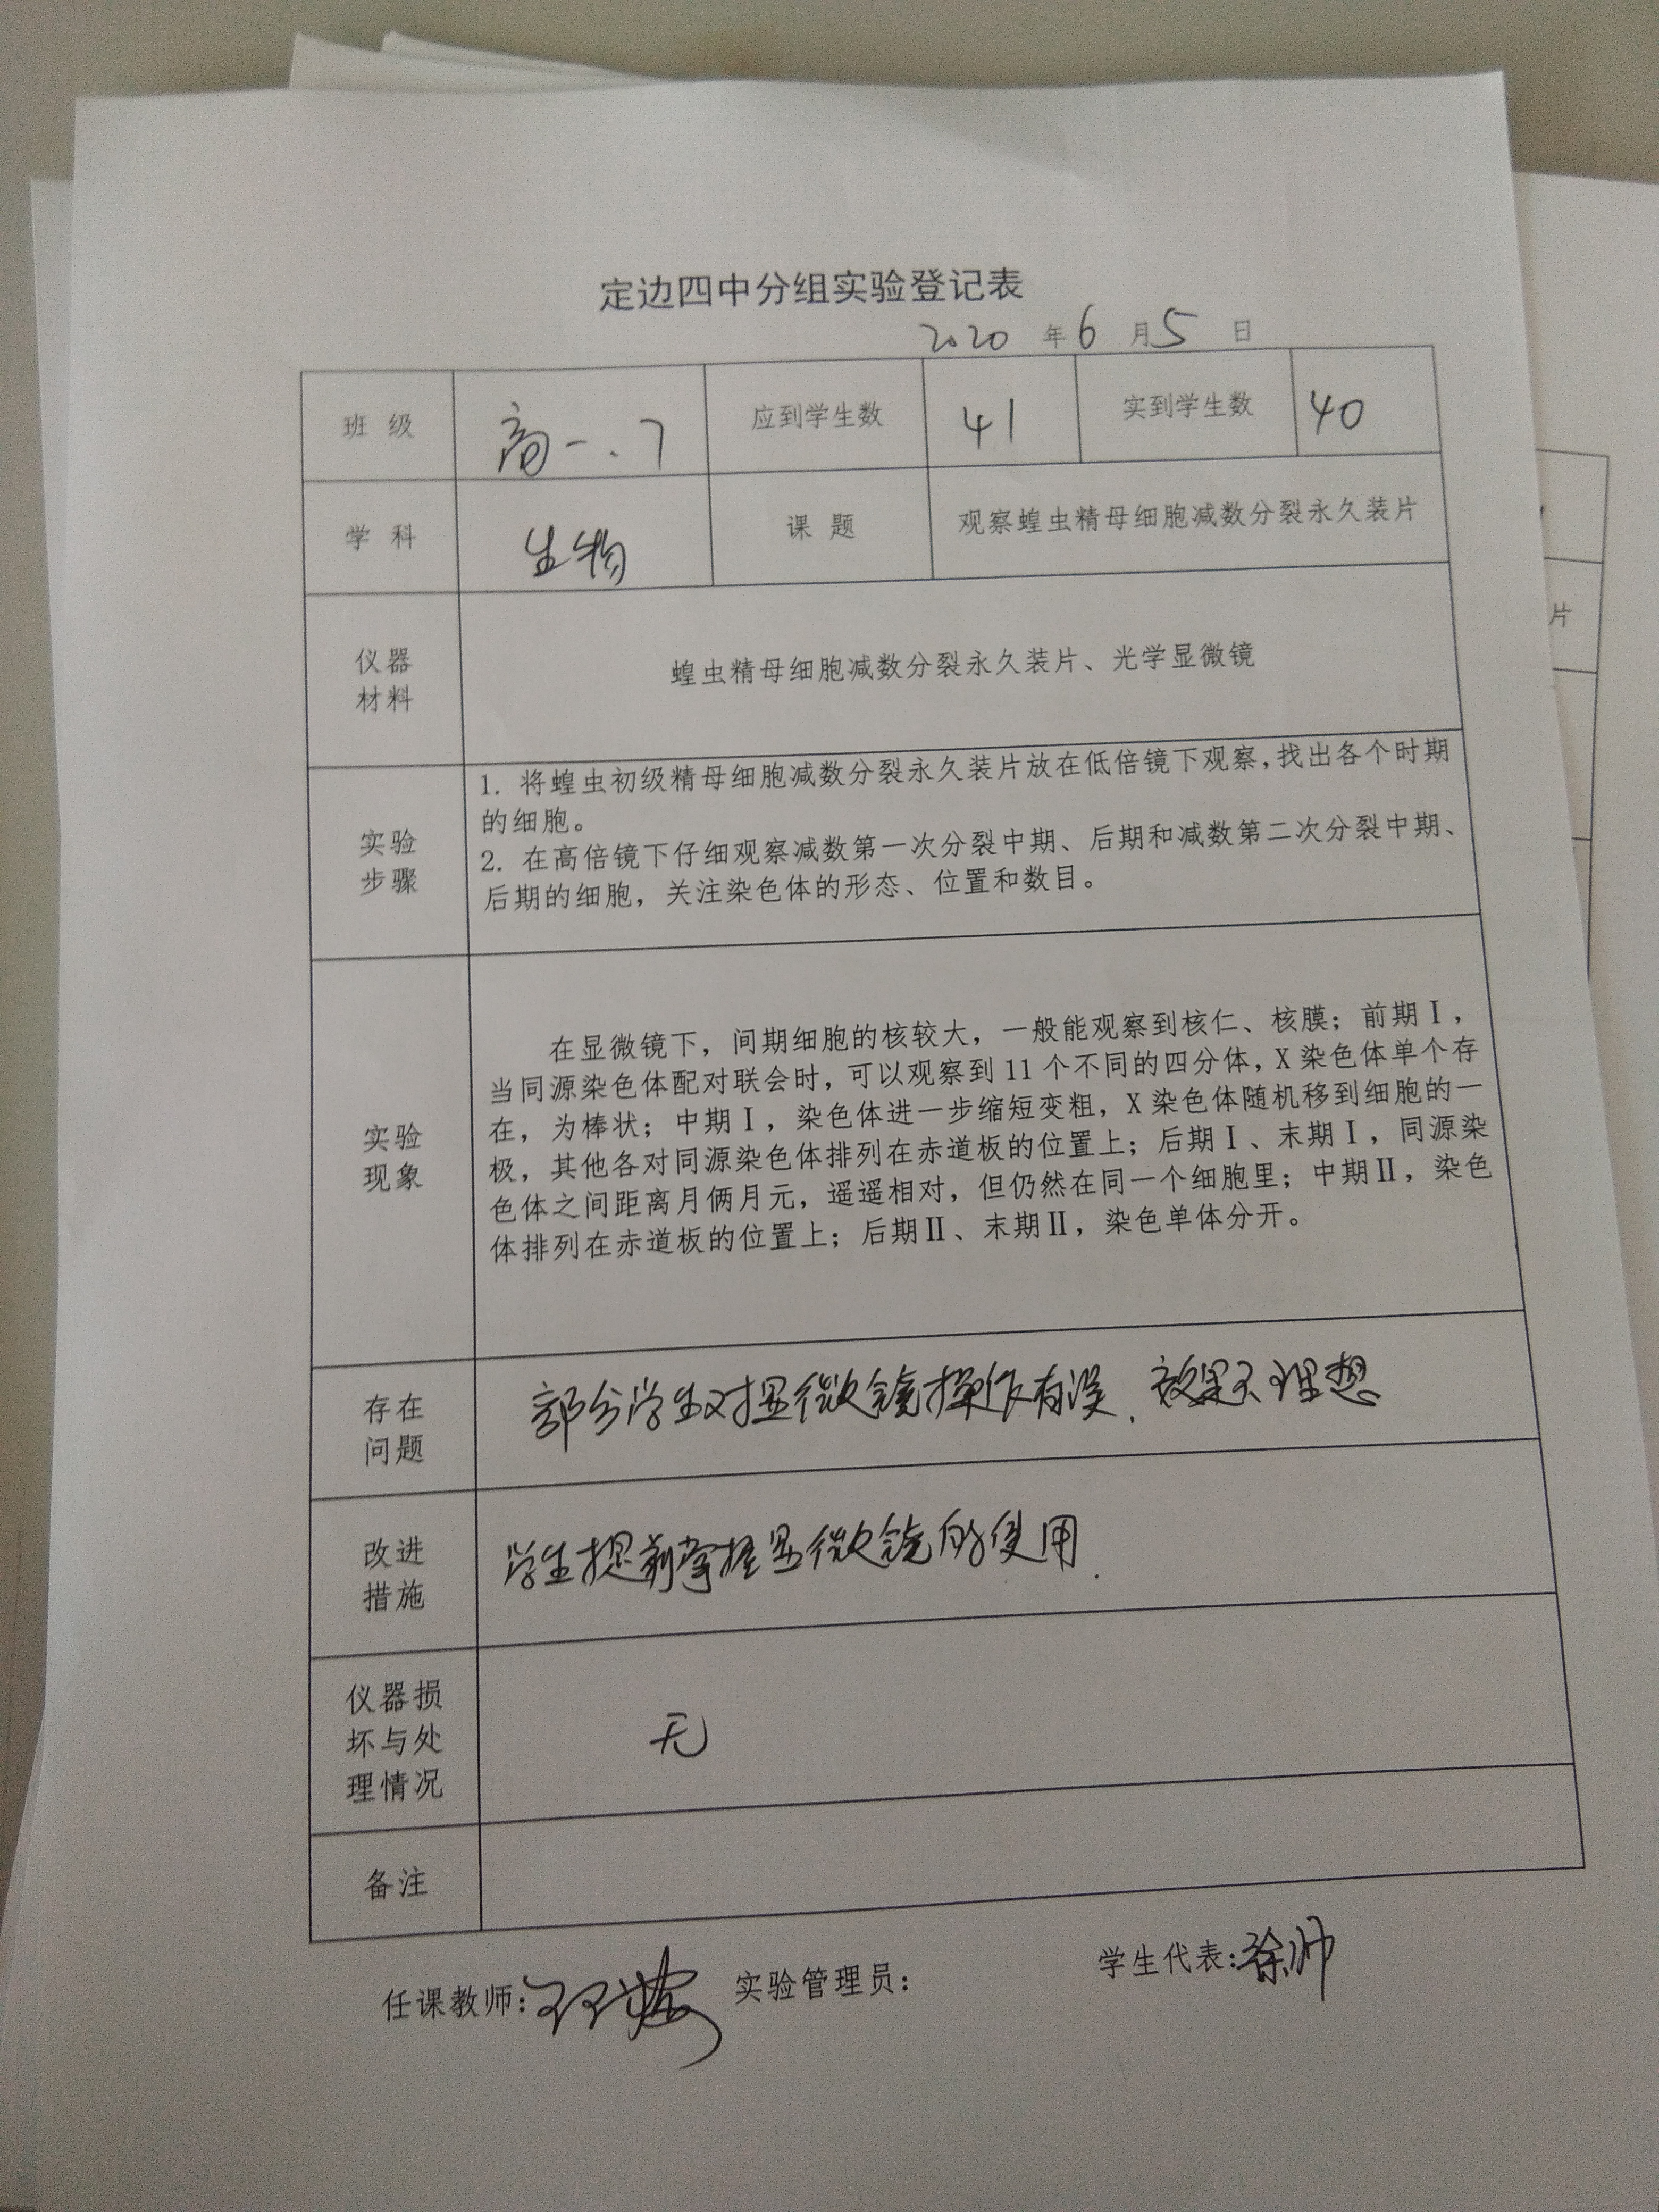 定边四中分组实验登记表
2020 年 6 月 5 日
班 级 高一.7 应到学生数 41 实到学生数 40
学 科 生物 课 题 观察蝗虫精母细胞减数分裂永久装片
仪器
材料
蝗虫精母细胞减数分裂永久装片、光学显微镜
实验
步骤
1. 将蝗虫初级精母细胞减数分裂永久装片放在低倍镜下观察,找出各个时期
的细胞。
2. 在高倍镜下仔细观察减数第一次分裂中期、后期和减数第二次分裂中期、
后期的细胞，关注染色体的形态、位置和数目。
实验
现象
在显微镜下，间期细胞的核较大，一般能观察到核仁、核膜；前期Ⅰ，
当同源染色体配对联会时，可以观察到 11 个不同的四分体，X 染色体单个存
在，为棒状；中期Ⅰ，染色体进一步缩短变粗，X 染色体随机移到细胞的一
极，其他各对同源染色体排列在赤道板的位置上；后期Ⅰ、末期Ⅰ，同源染
色体之间距离月俩月元，遥遥相对，但仍然在同一个细胞里；中期Ⅱ，染色
体排列在赤道板的位置上；后期Ⅱ、末期Ⅱ，染色单体分开。
存在
问题
部分学生对显微镜操作有误．效果不理想
改进
措施
学生提前掌握显微镜的使用．
仪器损
坏与处
理情况
无
备注
任课教师： 实验管理员： 学生代表：徐帅
片